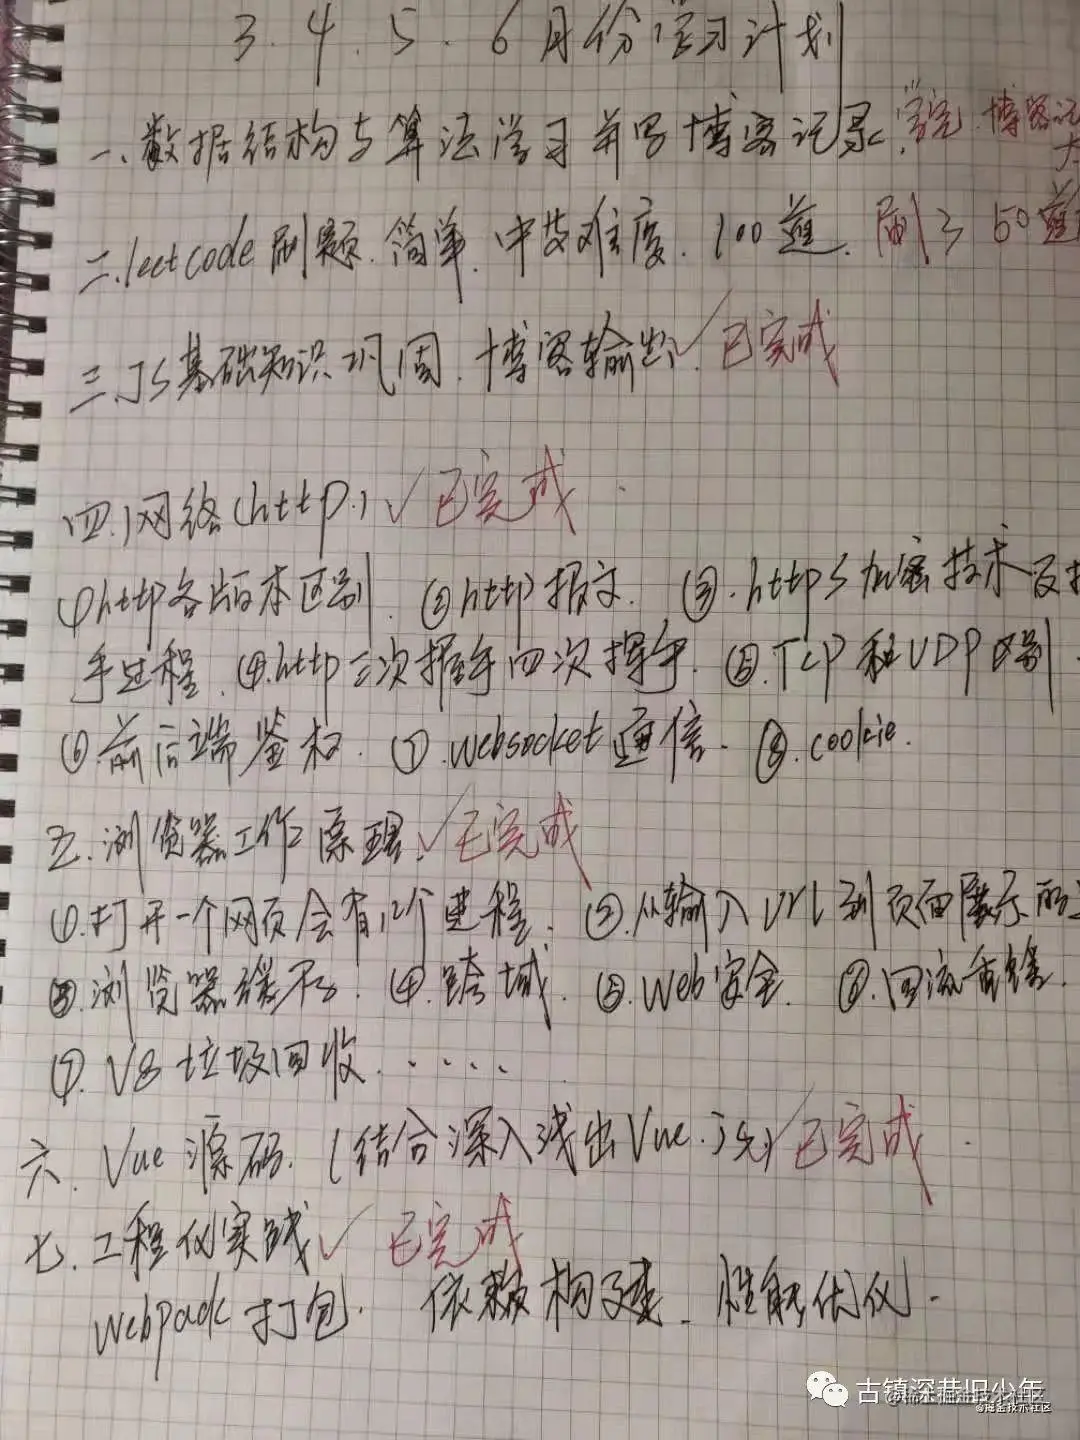 3.4.5.6月份学习计划
一、数据结构与算法学习并写博客记录.学完.博客记
二.leetcode刷题.简单.中等难度.100道.刷了50道
三.JS基础知识巩固.博客输出.✓已完成
四.网络(http.)✓已完成
①http各版本区别.②http报文.③.https加密技术及握
手过程.④.http三次握手四次挥手.⑤.TCP和UDP区别
⑥.前后端鉴权.⑦.websocket通信.⑧.cookie.
五.浏览器工作原理.✓已完成
①.打开一个网页会有几个进程.②.从输入url到页面展示的
③.浏览器缓存.④.跨域.⑤.Web安全.⑥.回流重绘.
⑦.V8垃圾回收......
六.Vue源码.(结合深入浅出Vue.js)✓已完成
七.工程化实践✓已完成
webpack打包.依赖构建.性能优化.
古镇深巷旧少年
@稀土掘金技术社区
@掘金技术社区